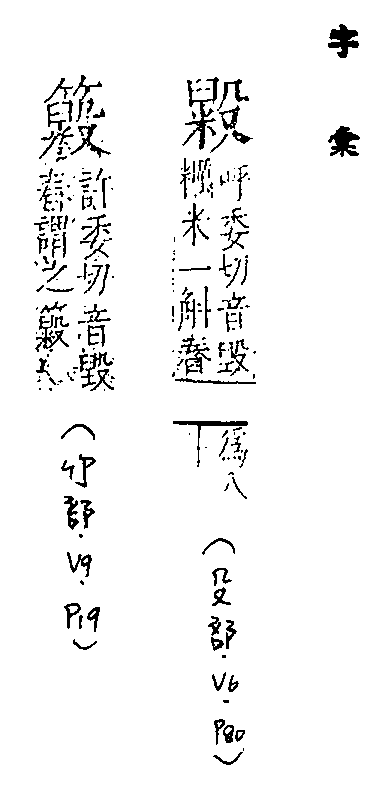 字彙
毇
呼委切音毀
糲米一斛舂
爲八
(殳部.V6.P80)
許委切音毀
舂謂之
(竹部.V9.P19)